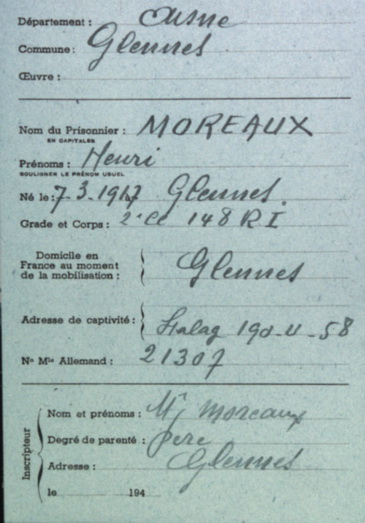 Département : Aisne
Commune : Glennes
Œuvre :
Nom du Prisonnier : MOREAUX
EN CAPITALES
Prénoms : Henri
SOULIGNER LE PRÉNOM USUEL
Né le : 7.3.1917 Glennes.
Grade et Corps : 2e Cl 148 R I
Domicile en
France au moment
de la mobilisation : Glennes
Adresse de captivité : Stalag 190-U-58
Nº Mle Allemand : 21307
Inscripteur
Nom et prénoms : Mr moreaux
Degré de parenté : père
Adresse : Glennes
le 194